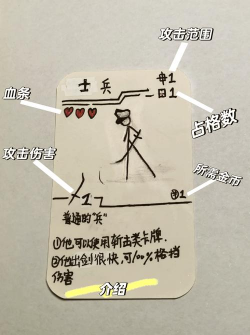 攻击范围
士兵
1
1
占格数
血条
攻击伤害
1
所需金币
1
普通的"兵"
①他可以使用斩击类卡牌.
②他出剑很快,可100%格挡
伤害
介绍